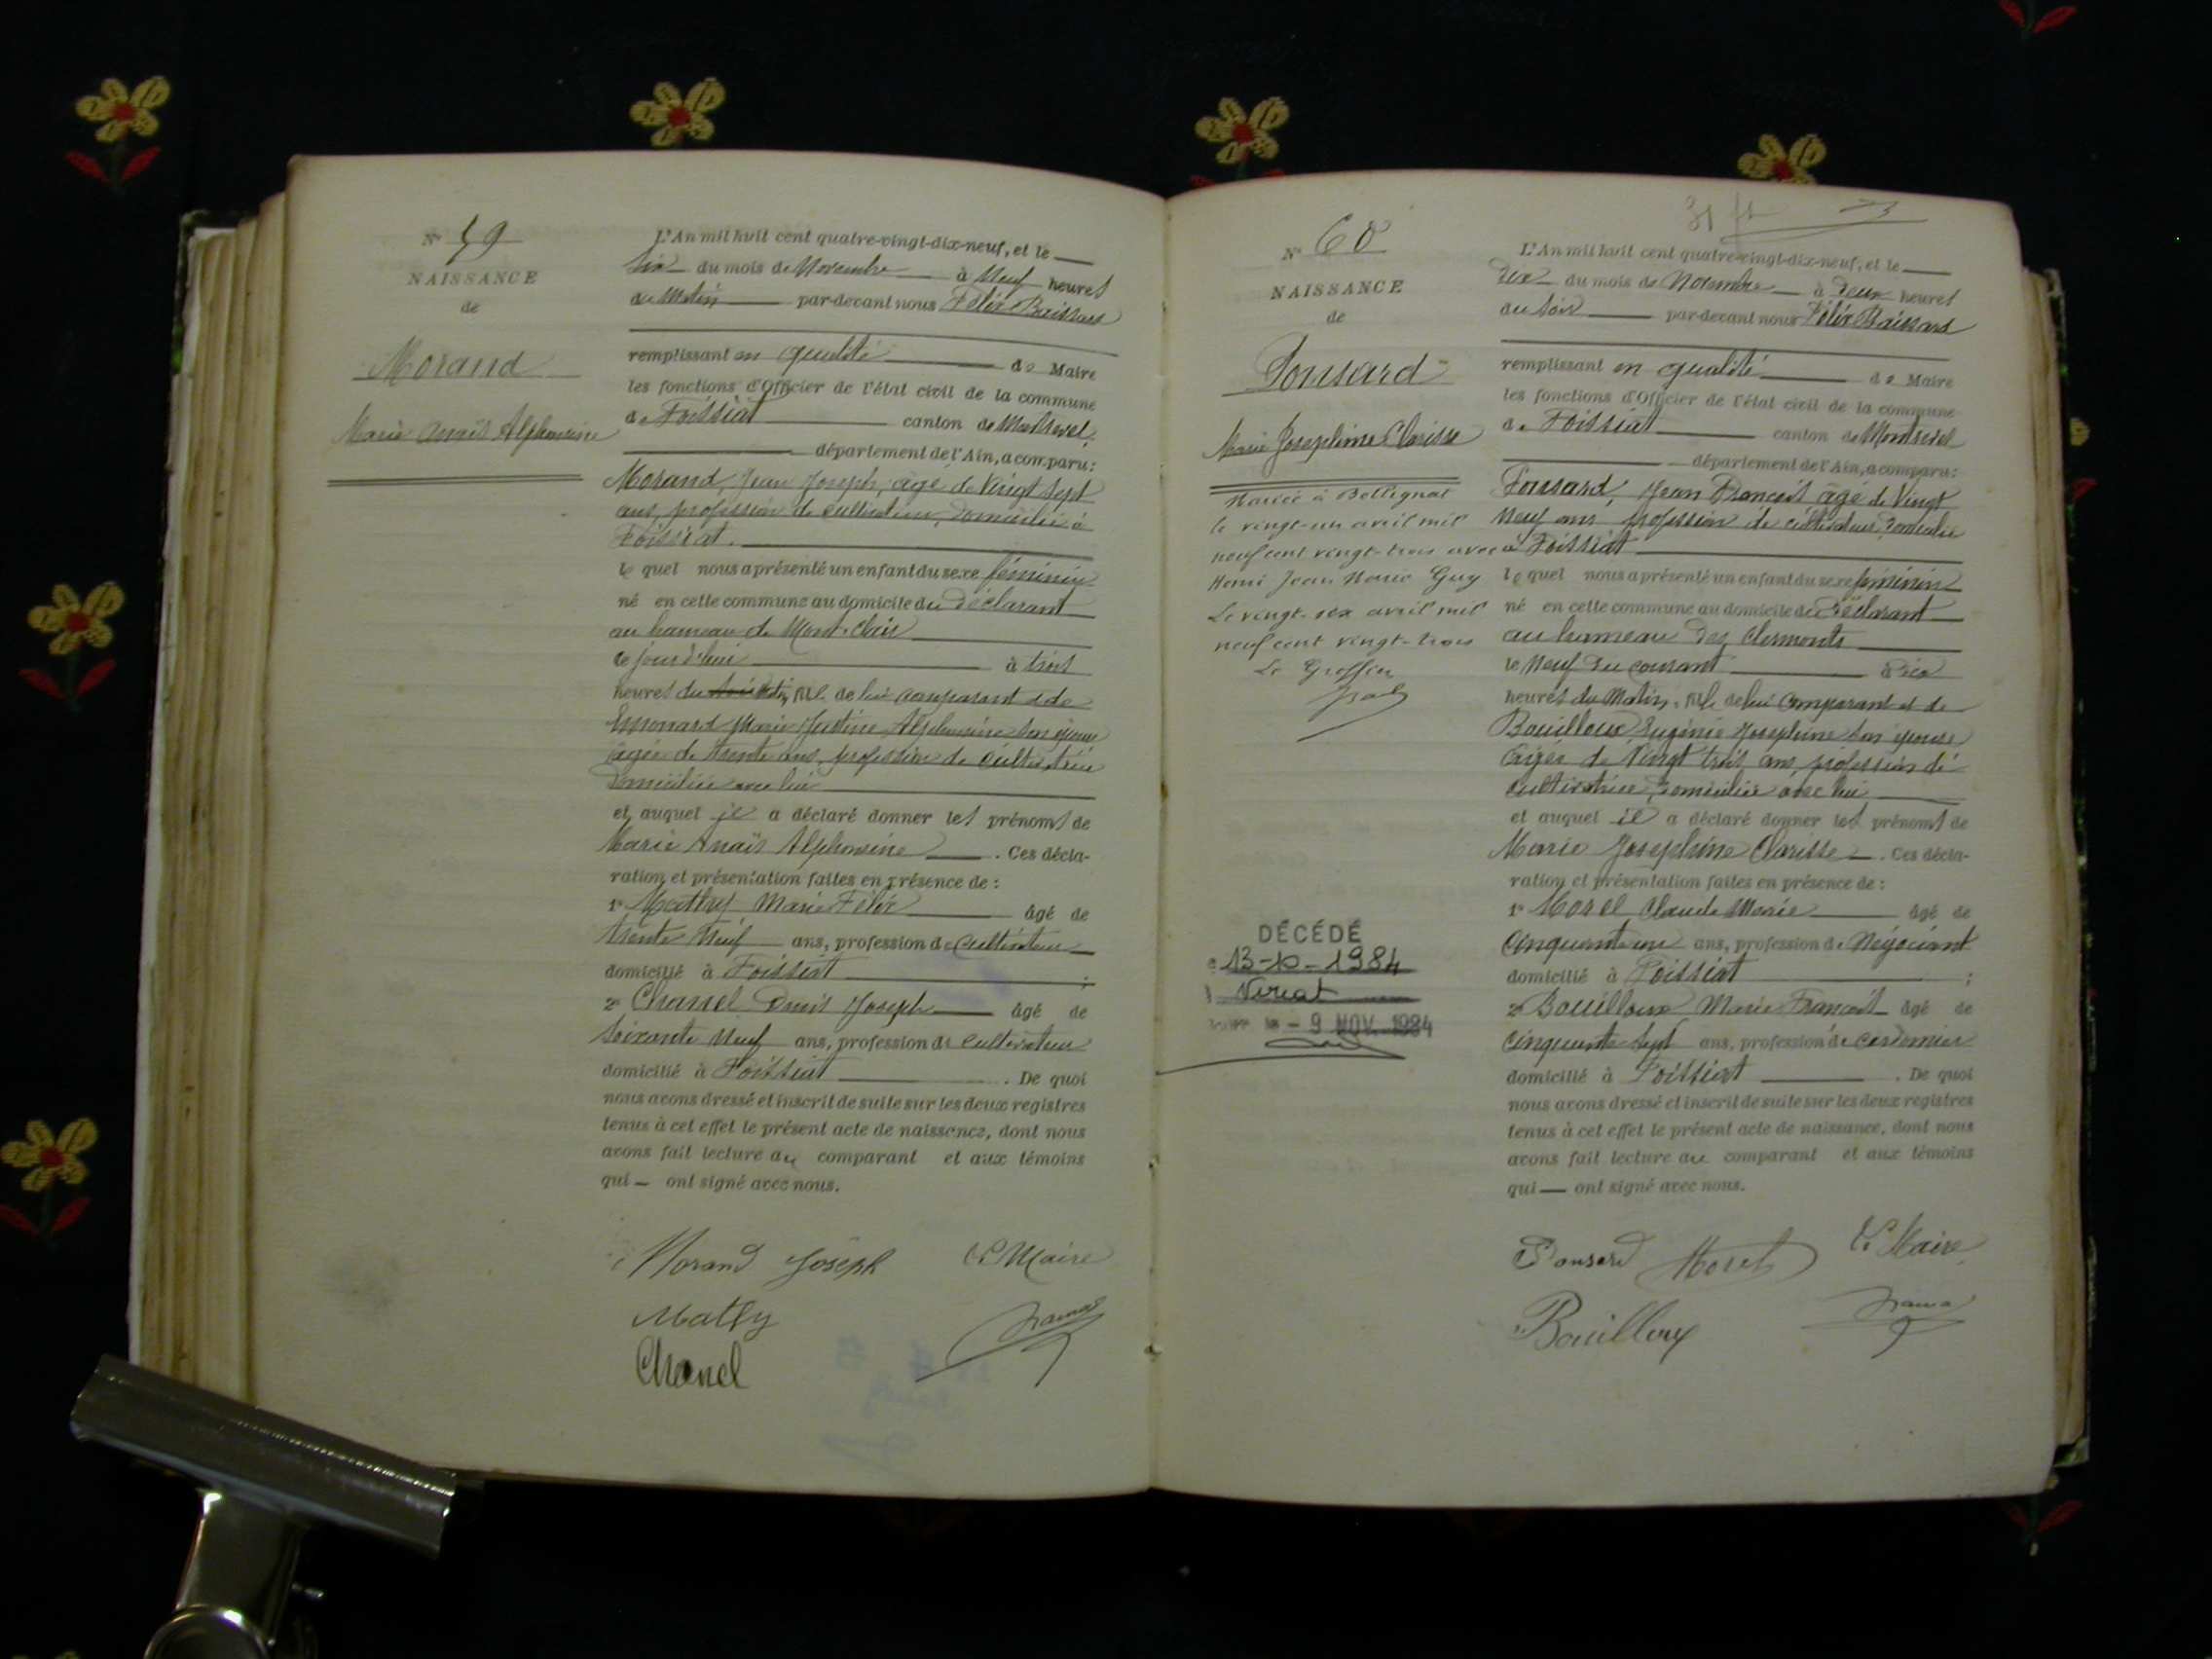 N° 59
NAISSANCE
de
Morand
Marie Anaïs Alphonsine
L'An mil huit cent quatre-vingt-dix-neuf, et le
Six du mois de Novembre à Neuf heures
du Matin par-devant nous Félix
remplissant en qualité de Maire
les fonctions d'Officier de l'état civil de la commune
de Foissiat canton de Montrevel,
département de l'Ain, a comparu:
Morand, Jean Joseph, âgé de Vingt Sept
ans, profession de cultivateur, domicilié à
Foissiat.
le quel nous a présenté un enfant du sexe féminin
né en cette commune au domicile du Déclarant
au hameau de
le jour d'hui à trois
heures du Matin, fille de lui comparant et de
Marie Justine Alphonsine son épouse
âgée de trente ans, profession de cultivatrice
domiciliée avec lui
et auquel il a déclaré donner les prénoms de
Marie Anaïs Alphonsine. Ces décla-
ration et présentation faites en présence de :
1° Marie Félix âgé de
trente Neuf ans, profession de Cultivateur
domicilié à Foissiat ;
2° Chanel Denis Joseph âgé de
Soixante Neuf ans, profession de Cultivateur
domicilié à Foissiat. De quoi
nous avons dressé et inscrit de suite sur les deux registres
tenus à cet effet le présent acte de naissance, dont nous
avons fait lecture au comparant et aux témoins
qui ont signé avec nous.
Morand Joseph Le Maire
Chanel
N° 60
NAISSANCE
de
Ponsard
Marie Joséphine Clarisse
Mariée à Bellignat
le vingt-un avril mil
neuf cent vingt-trois avec
Henri Jean Marie Guy
Le vingt-six avril mil
neuf cent vingt-trois
Le Greffier
DÉCÉDÉ
13-10-1984
Viriat
- 9 NOV. 1984
L'An mil huit cent quatre-vingt-dix-neuf, et le
Dix du mois de Novembre à Deux heures
du soir par-devant nous Félix
remplissant en qualité de Maire
les fonctions d'Officier de l'état civil de la commune
de Foissiat canton de Montrevel
département de l'Ain, a comparu:
Ponsard, Jean François âgé de Vingt
Neuf ans profession de cultivateur, domicilié
à Foissiat
le quel nous a présenté un enfant du sexe féminin
né en cette commune au domicile du Déclarant
au hameau des Clermonts
le Neuf du courant à Dix
heures du Matin, fille de lui comparant et de
Bouilloux Eugénie Joséphine son épouse
âgée de Vingt trois ans, profession de
cultivatrice, domiciliée avec lui
et auquel il a déclaré donner les prénoms de
Marie Joséphine Clarisse. Ces décla-
ration et présentation faites en présence de :
1° Morel Claude Marie âgé de
Cinquante un ans, profession de Négociant
domicilié à Foissiat ;
2° Bouilloux Marie François âgé de
Cinquante Sept ans, profession de Cordonnier
domicilié à Foissiat. De quoi
nous avons dressé et inscrit de suite sur les deux registres
tenus à cet effet le présent acte de naissance, dont nous
avons fait lecture au comparant et aux témoins
qui ont signé avec nous.
Ponsard Morel Le Maire
Bouilloux